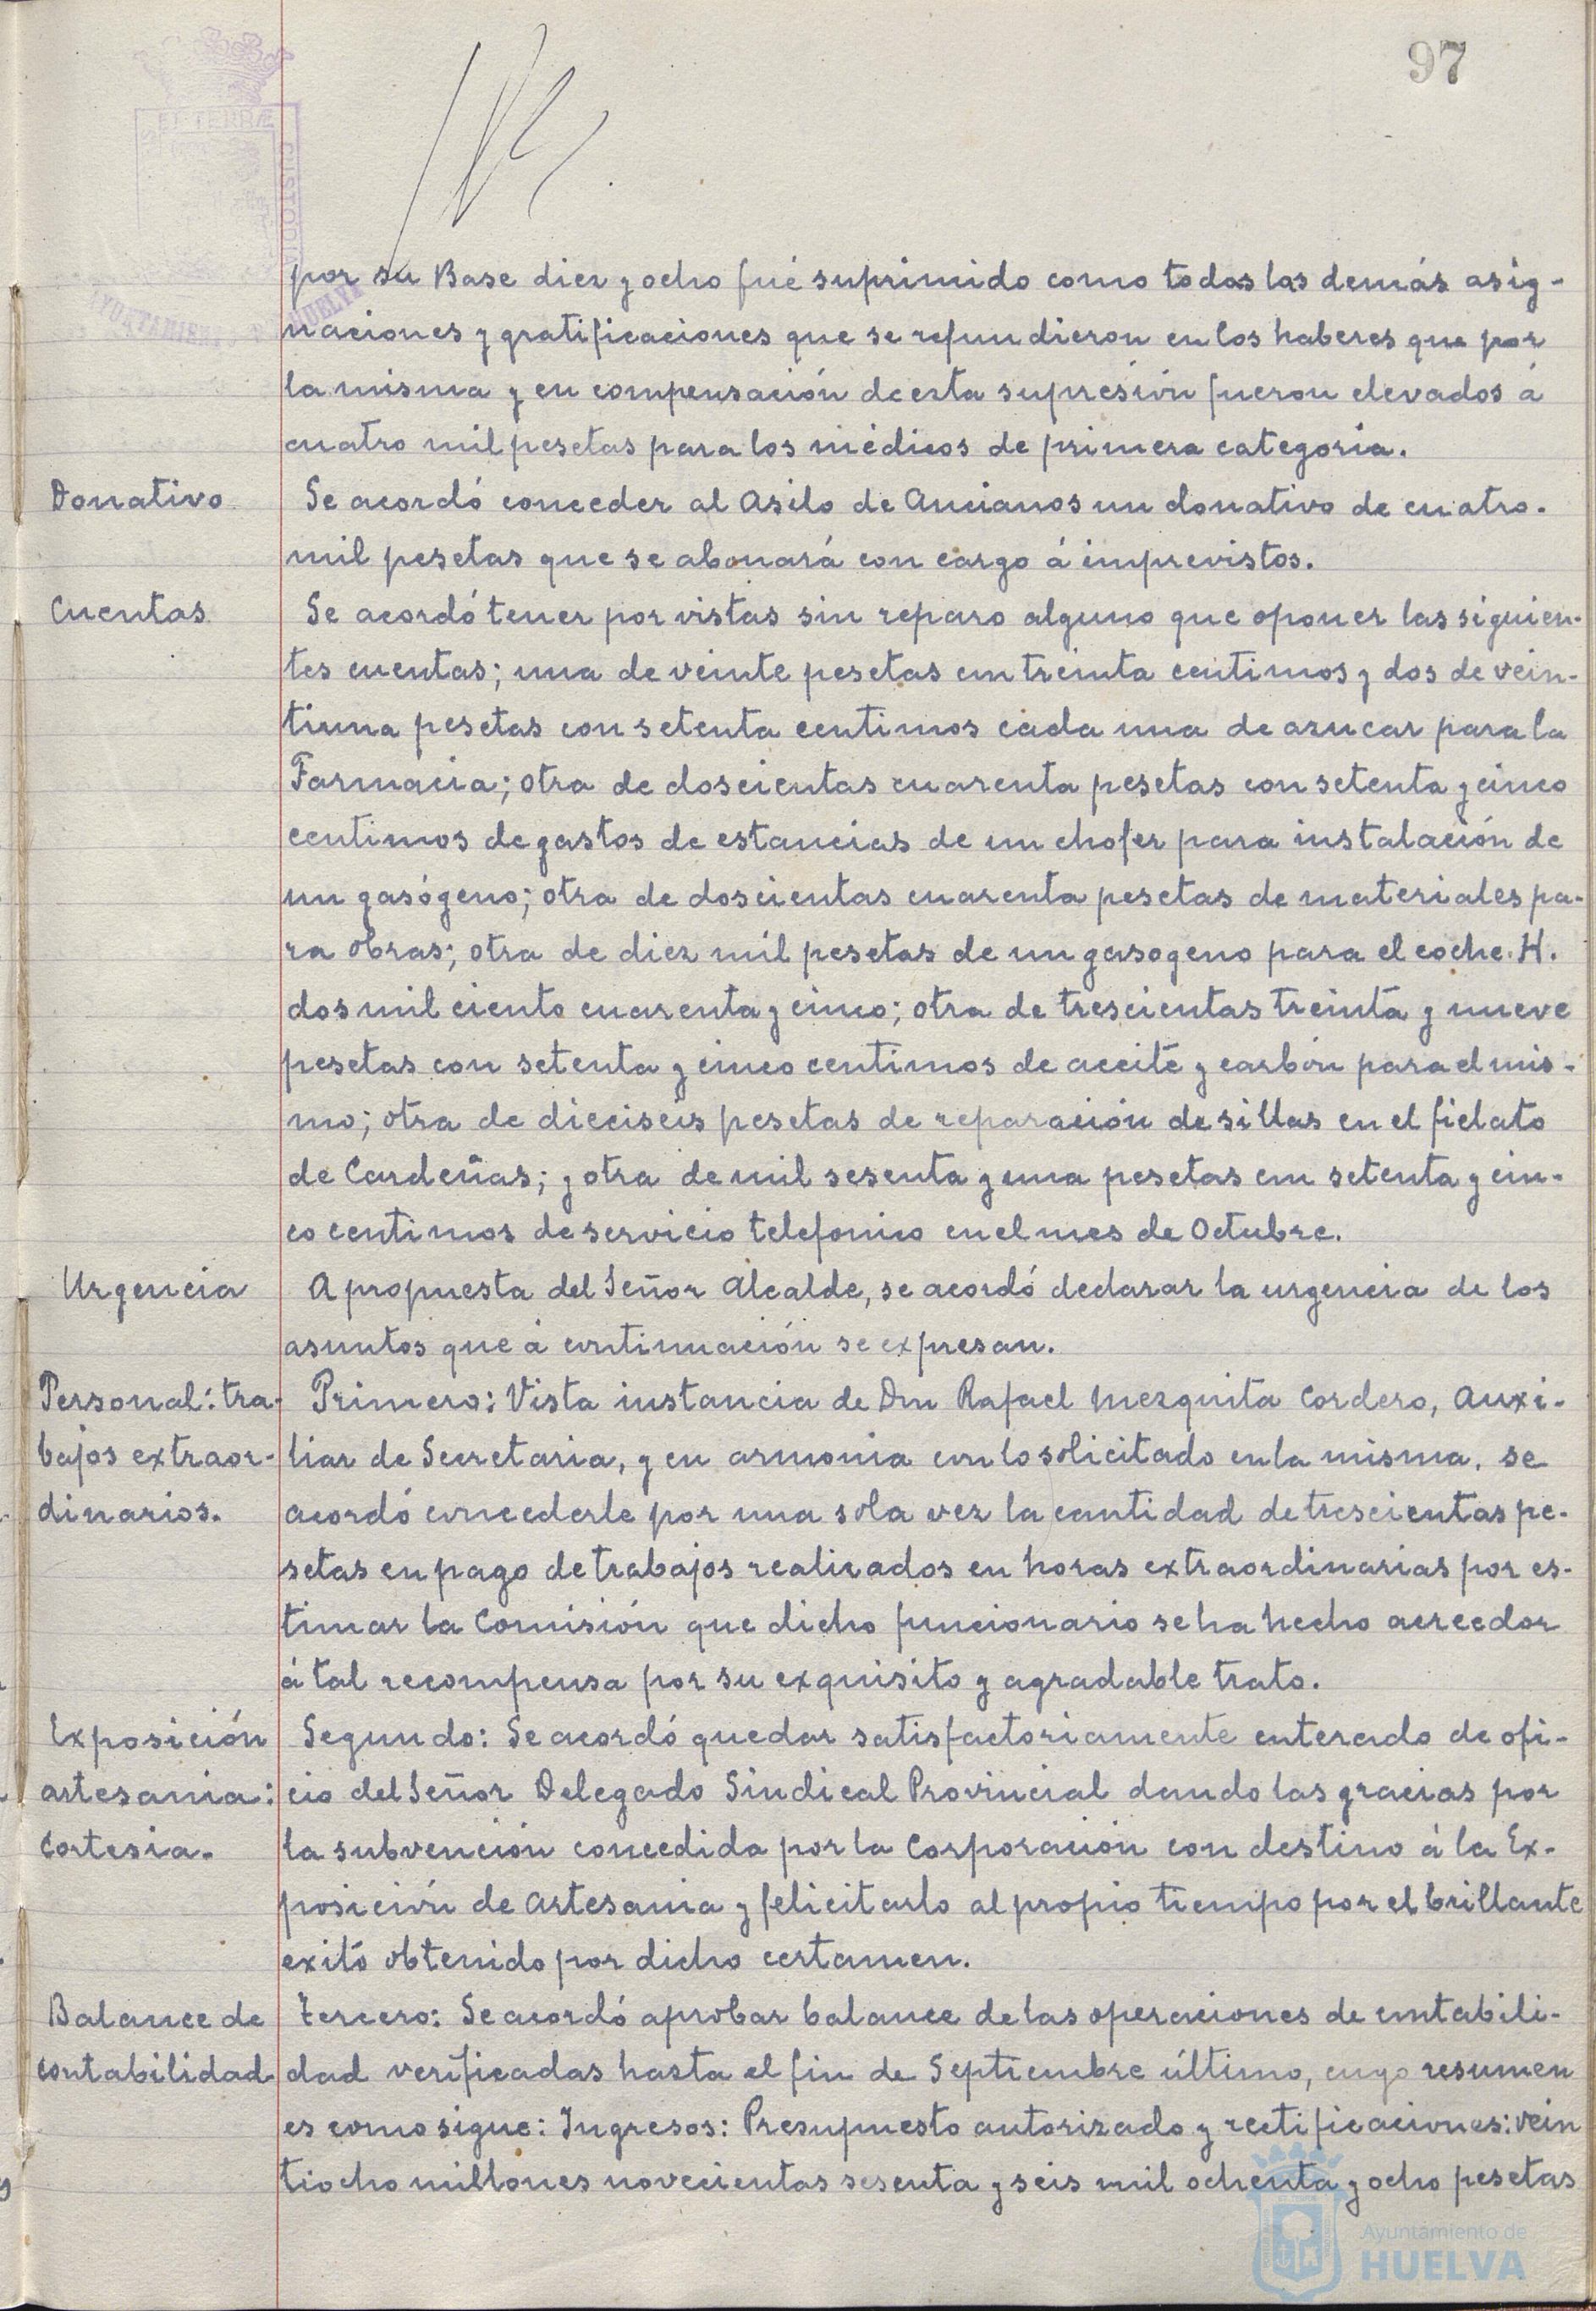 97
ET TERRÆ
CUSTODI
AYUNTAMIENTO DE HUELVA
por su Base diez y ocho fué suprimido como todas las demás asig-
naciones y gratificaciones que se refundieron en los haberes que por
la misma y en compensación de esta supresión fueron elevados á
cuatro mil pesetas para los médicos de primera categoria.
Donativo Se acordó conceder al Asilo de Ancianos un donativo de cuatro.
mil pesetas que se abonará con cargo á imprevistos.
Cuentas Se acordó tener por vistas sin reparo alguno que oponer las siguien-
tes cuentas; una de veinte pesetas con treinta centimos y dos de vein-
tiuna pesetas con setenta centimos cada una de azucar para la
Farmacia; otra de doscientas cuarenta pesetas con setenta y cinco
centimos de gastos de estancias de un chofer para instalación de
un gasógeno; otra de doscientas cuarenta pesetas de materiales pa-
ra obras; otra de diez mil pesetas de un gasogeno para el coche. H.
dos mil ciento cuarenta y cinco; otra de trescientas treinta y nueve
pesetas con setenta y cinco centimos de aceite y carbón para el mis-
mo; otra de dieciseis pesetas de reparación de sillas en el fielato
de Cardeñas; y otra de mil sesenta y una pesetas con setenta y cin-
co centimos de servicio telefonico en el mes de Octubre.
Urgencia A propuesta del Señor Alcalde, se acordó declarar la urgencia de los
asuntos que á continuación se expresan.
Personal: tra- Primero: Vista instancia de Don Rafael Mezquita Cordero, Auxi-
bajos extraor- liar de Secretaria, y en armonia con lo solicitado en la misma, se
dinarios. acordó concederle por una sola vez la cantidad de trescientas pe-
setas en pago de trabajos realizados en horas extraordinarias por es-
timar la Comisión que dicho funcionario se ha hecho acreedor
á tal recompensa por su exquisito y agradable trato.
Exposición Segundo: Se acordó quedar satisfactoriamente enterado de ofi-
artesania: cio del Señor Delegado Sindical Provincial dando las gracias por
Cortesia. la subvención concedida por la Corporación con destino á la Ex-
posición de Artesania y felicitarlo al propio tiempo por el brillante
exitó obtenido por dicho certamen.
Balance de Tercero: Se acordó aprobar balance de las operaciones de contabili-
contabilidad dad verificadas hasta el fin de Septiembre último, cuyo resumen
es como sigue: Ingresos: Presupuesto autorizado y rectificaciones: vein
tiocho millones novecientas sesenta y seis mil ochenta y ocho pesetas
Ayuntamiento de
HUELVA